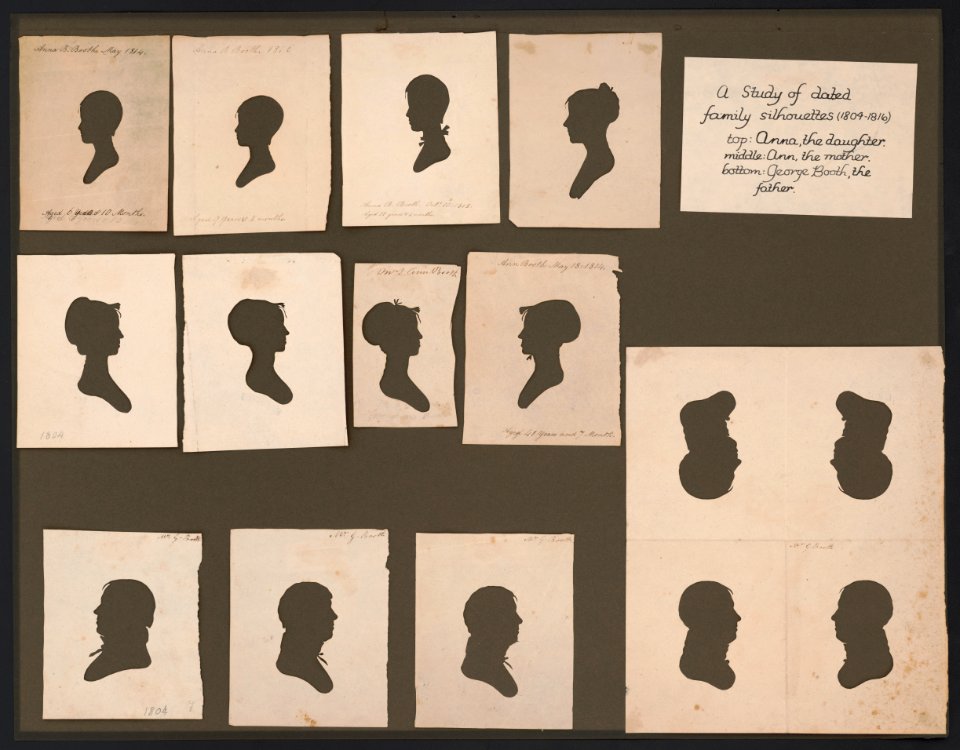 Anna B. Booth May 1814.
Aged 6 years & 10 Months.
Anna B. Booth.
Aged 9 years & 3 months
Anna B. Booth. Octr.
A Study of dated
family silhouettes (1804-1816)
top: Anna, the daughter.
middle: Ann, the mother.
bottom: George Booth, the
father.
1804
Ann Booth May 18. 1814.
Aged 41 Years and 7 Month.
Mr. G. Booth
1804
Mr. G. Booth
Mr. G. Booth
Mr. G. Booth